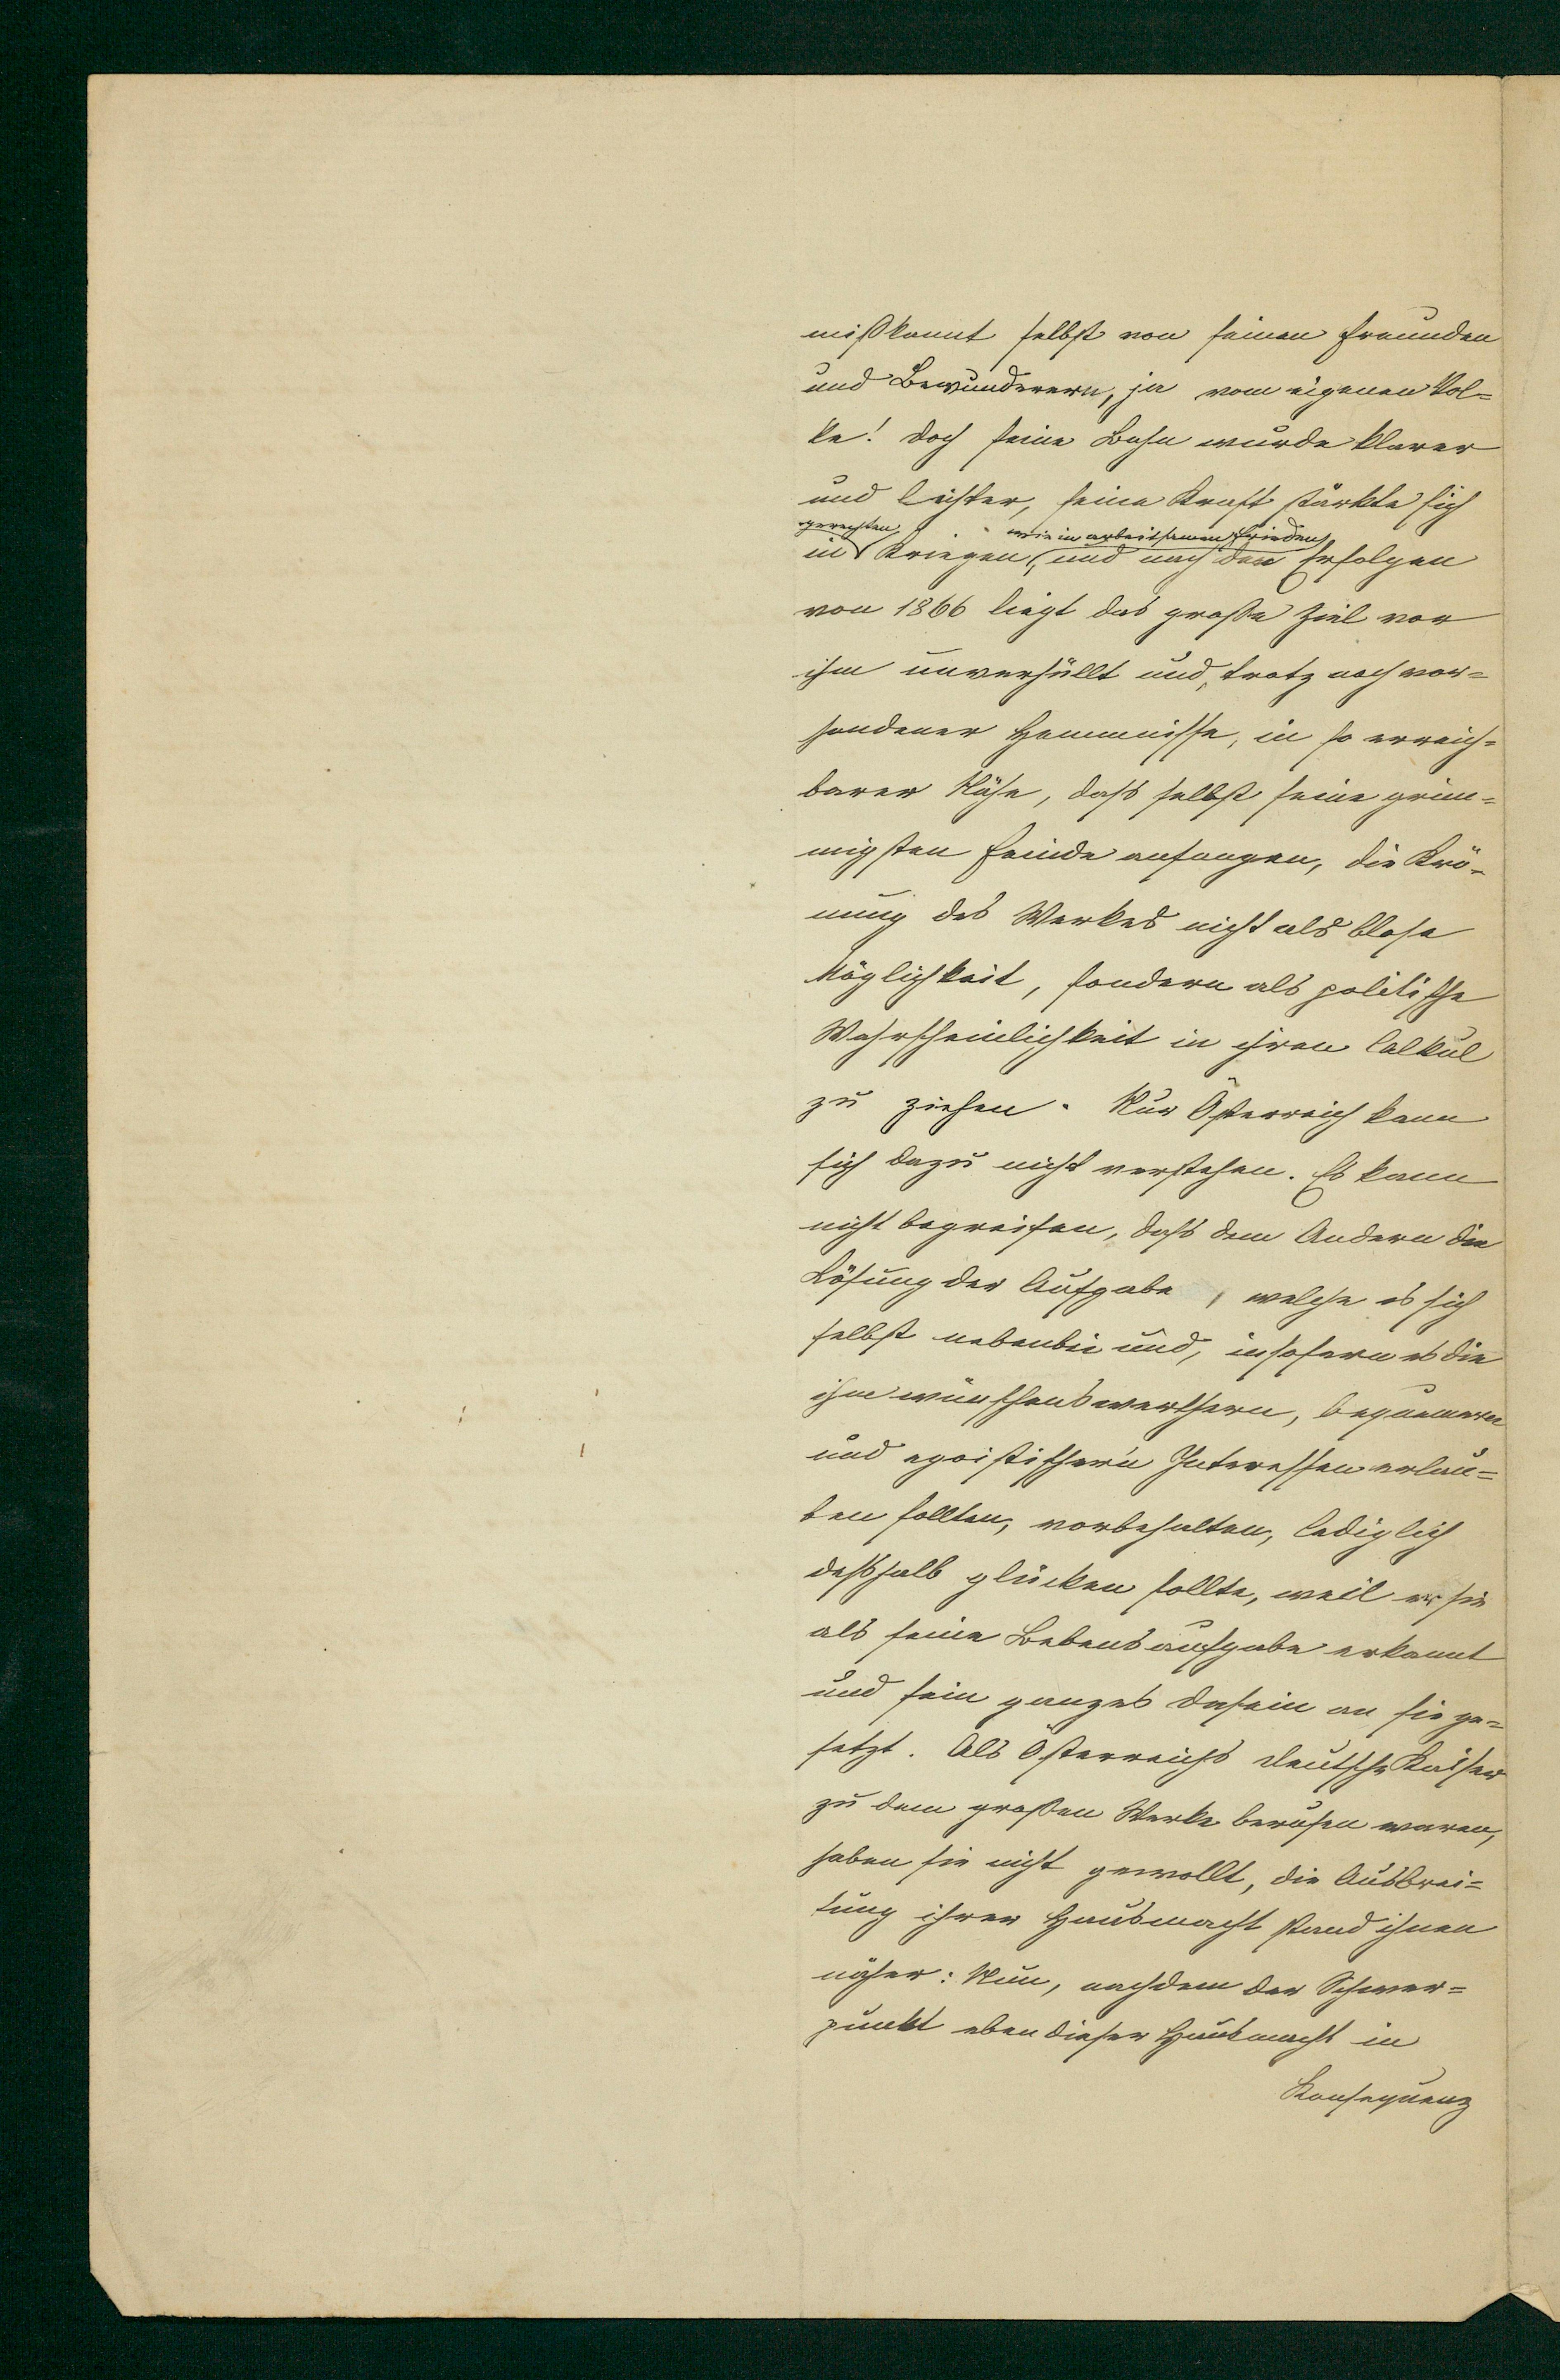 mißkannt selbst von seinen Freunden
und Bewunderern, ja vom eigenen Vol=
ke! Doch seine Bahn wurde klarer
und lichter, seine Kraft stärkte sich
gerechten wie in arbeitsamen Frieden,
in Kriegen, und nach den Erfolgen
von 1866 liegt das große Ziel vor
ihm unverhüllt und, trotz noch vor=
handener Hemmnisse, in so erreich=
barer Nähe, dass selbst seine grim=
migsten Feinde anfangen, die Krö=
nung des Werkes nicht als blose
Möglichkeit, sondern als politische
Wahrscheinlichkeit in ihren Calkul
zu ziehen. Nur Österreich kann
sich dazu nicht verstehen. Es kann
nicht begreifen, dass dem Andern die
Lösung der Aufgabe, welche es sich
selbst nebenbei und, insofern es die
ihm wünschenswerthern, bequemern
und egoistischern Interessen erlau=
ben sollten, vorbehalten, lediglich
desshalb glücken sollte, weil er sie
als seine Lebensaufgabe erkannt
und sein ganzes Dasein an sie ge=
setzt. Als Österreichs deutsche Kaiser
zu dem großen Werke berufen waren,
haben sie nicht gewollt, die Ausbrei=
tung ihrer Hausmacht stand ihnen
näher: Nun, nachdem der Schwer=
punkt eben dieser Hausmacht in
Konsequenz